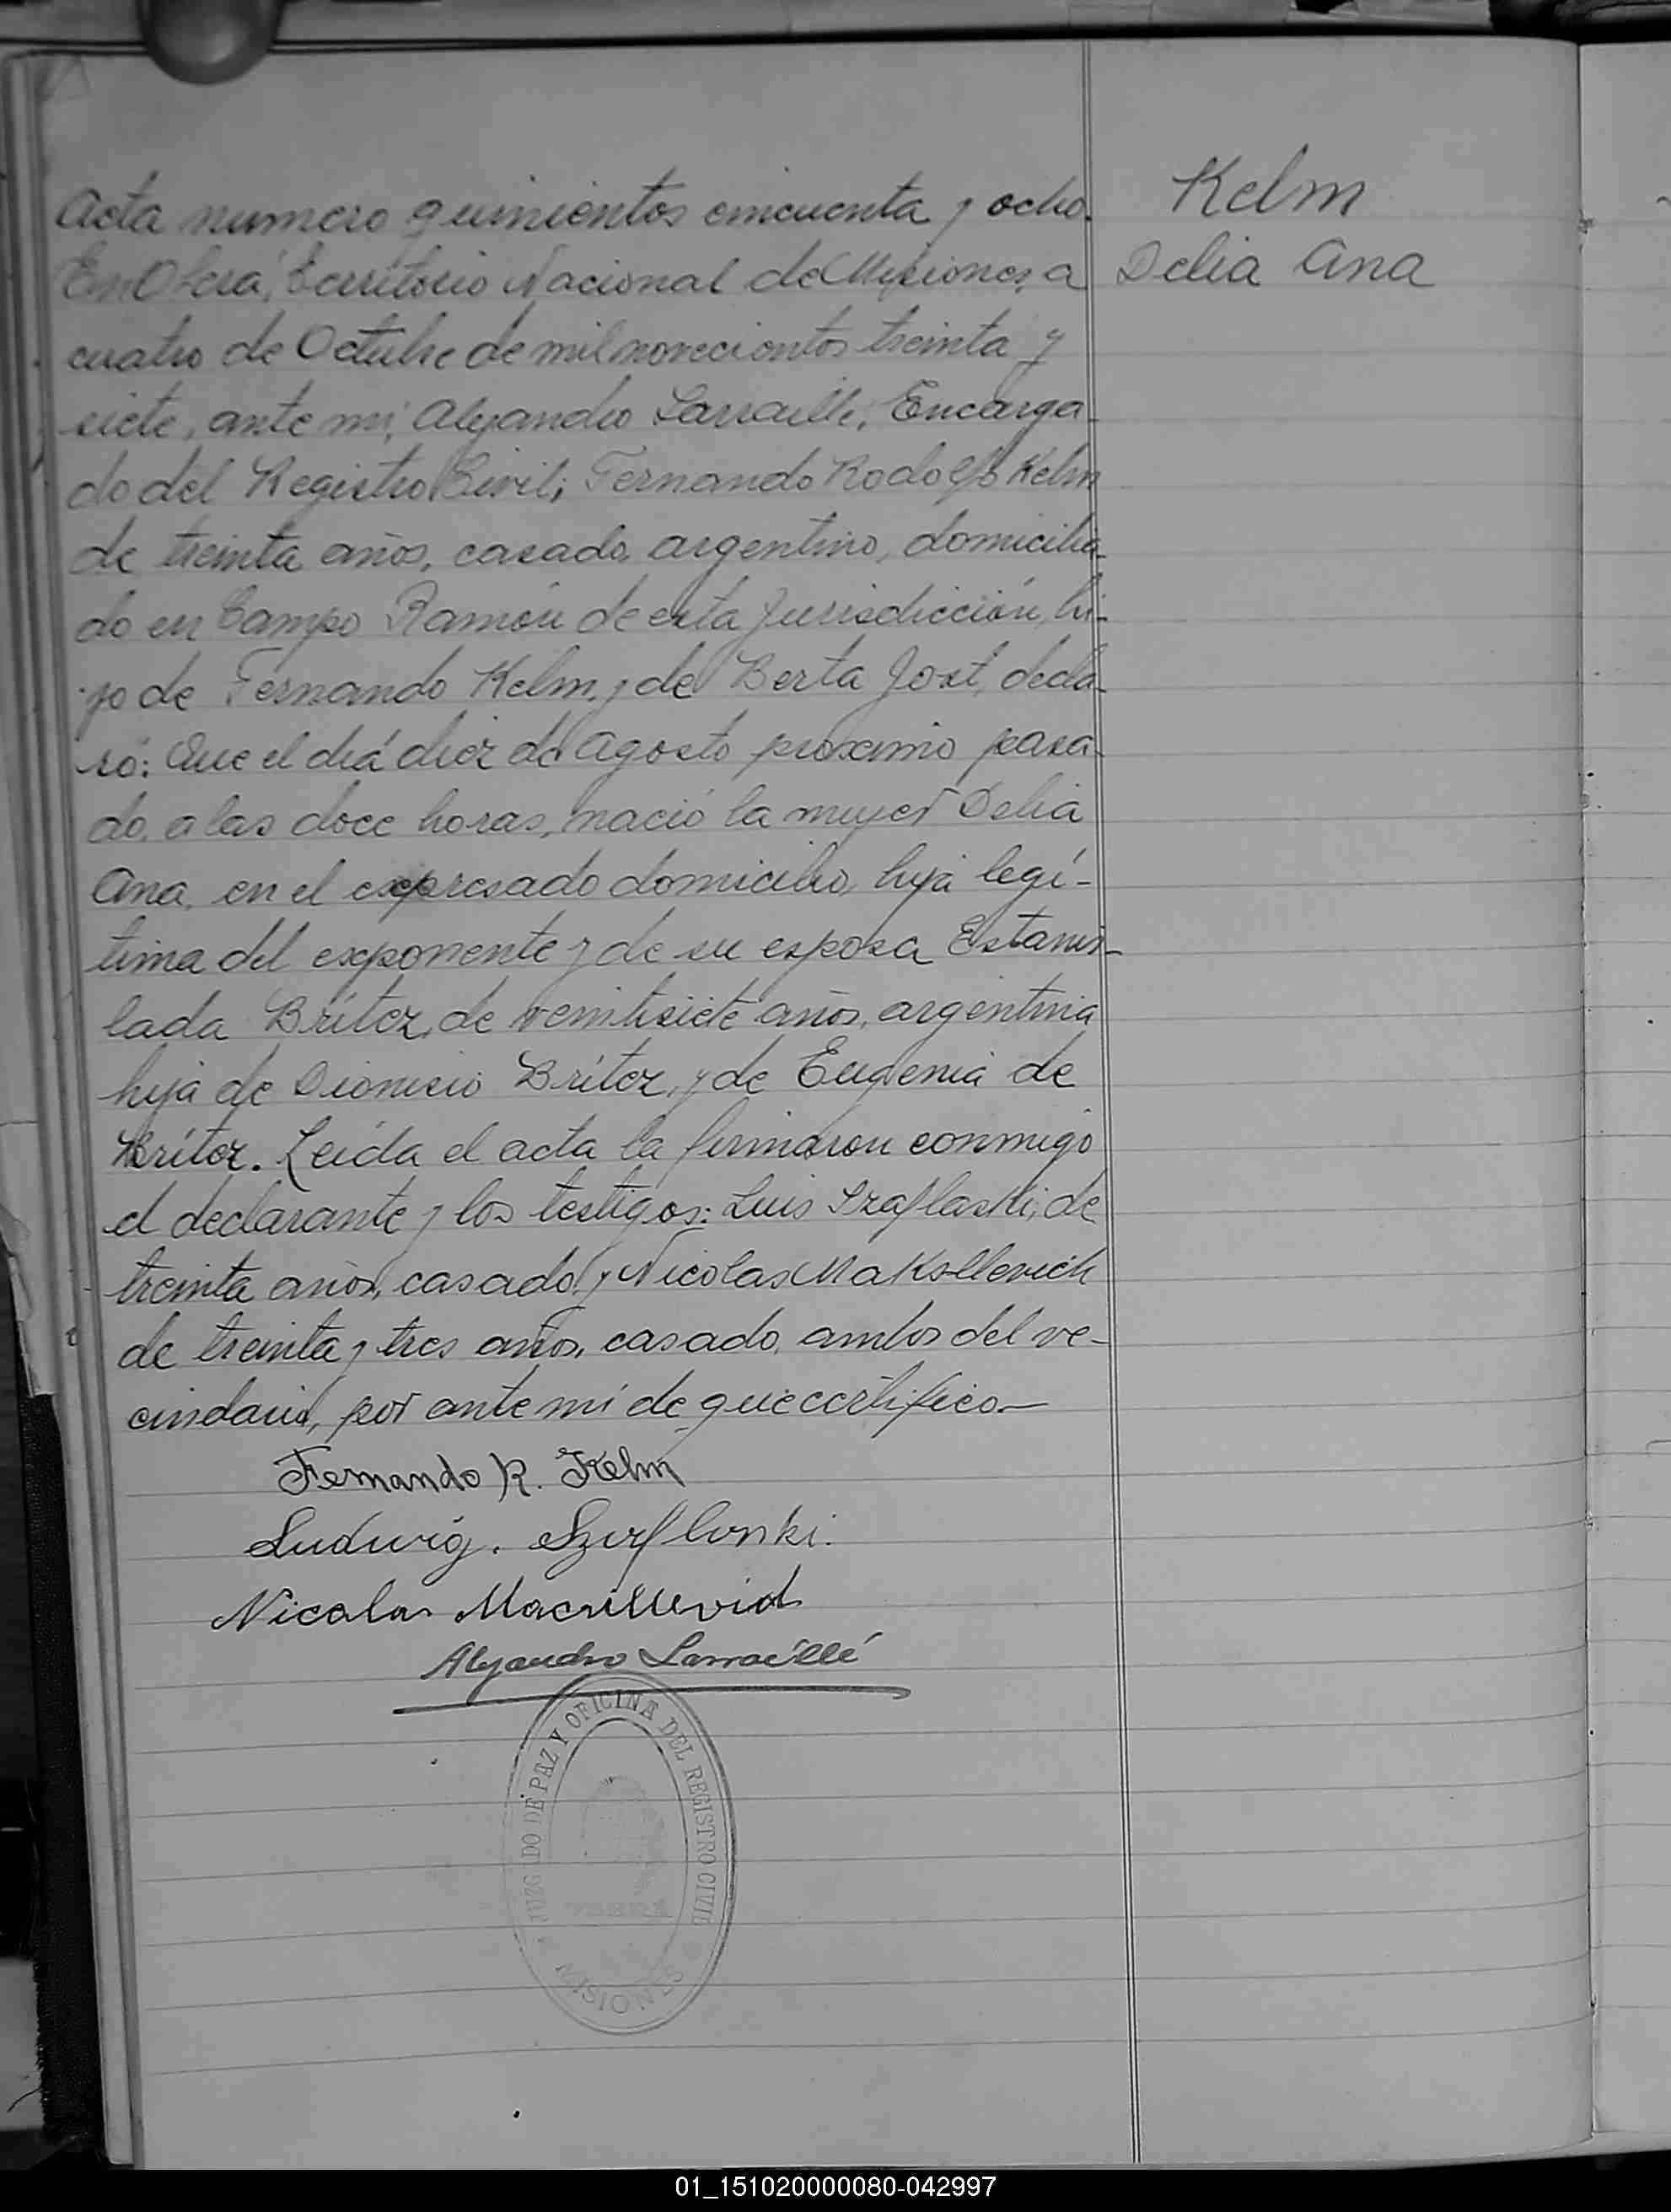 Acta numero quinientos cincuenta y ocho.
En Oberá, Territorio Nacional de Misiones, a
cuatro de Octubre de mil novecientos treinta y
siete, ante mi, Alejandro Larraillé, Encarga-
do del Registro Civil; Fernando Rodolfo Kelm
de treinta años, casado, argentino, domicilia-
do en Campo Ramón de esta Jurisdicción, hi-
jo de Fernando Kelm, y de Berta Jost, decla-
ró: Que el diá diez de Agosto proximo pasa-
do, a las doce horas, nació la mujer Delia
Ana, en el expresado domicilio, hija legí-
tima del exponente y de su esposa Estanis-
lada Brítez, de veintisiete años, argentina
hija de Dionicio Brítez, y de Eugenia de
Brítez. Leída el acta la firmaron conmigo
el declarante y los testigos: Luis Szaflaski, de
treinta años, casado, y Nicolas Maksllevich
de treinta y tres años, casado, ambos del ve-
cindario, por ante mí de que certifico.—
Kelm
Delia Ana
Fernando R. Kelm
Ludwig. Szaflonski.
Nicolas
Alejandro Larraillé
JUZGADO DE PAZ Y OFICINA DEL REGISTRO CIVIL
MISIONES
01_151020000080-042997